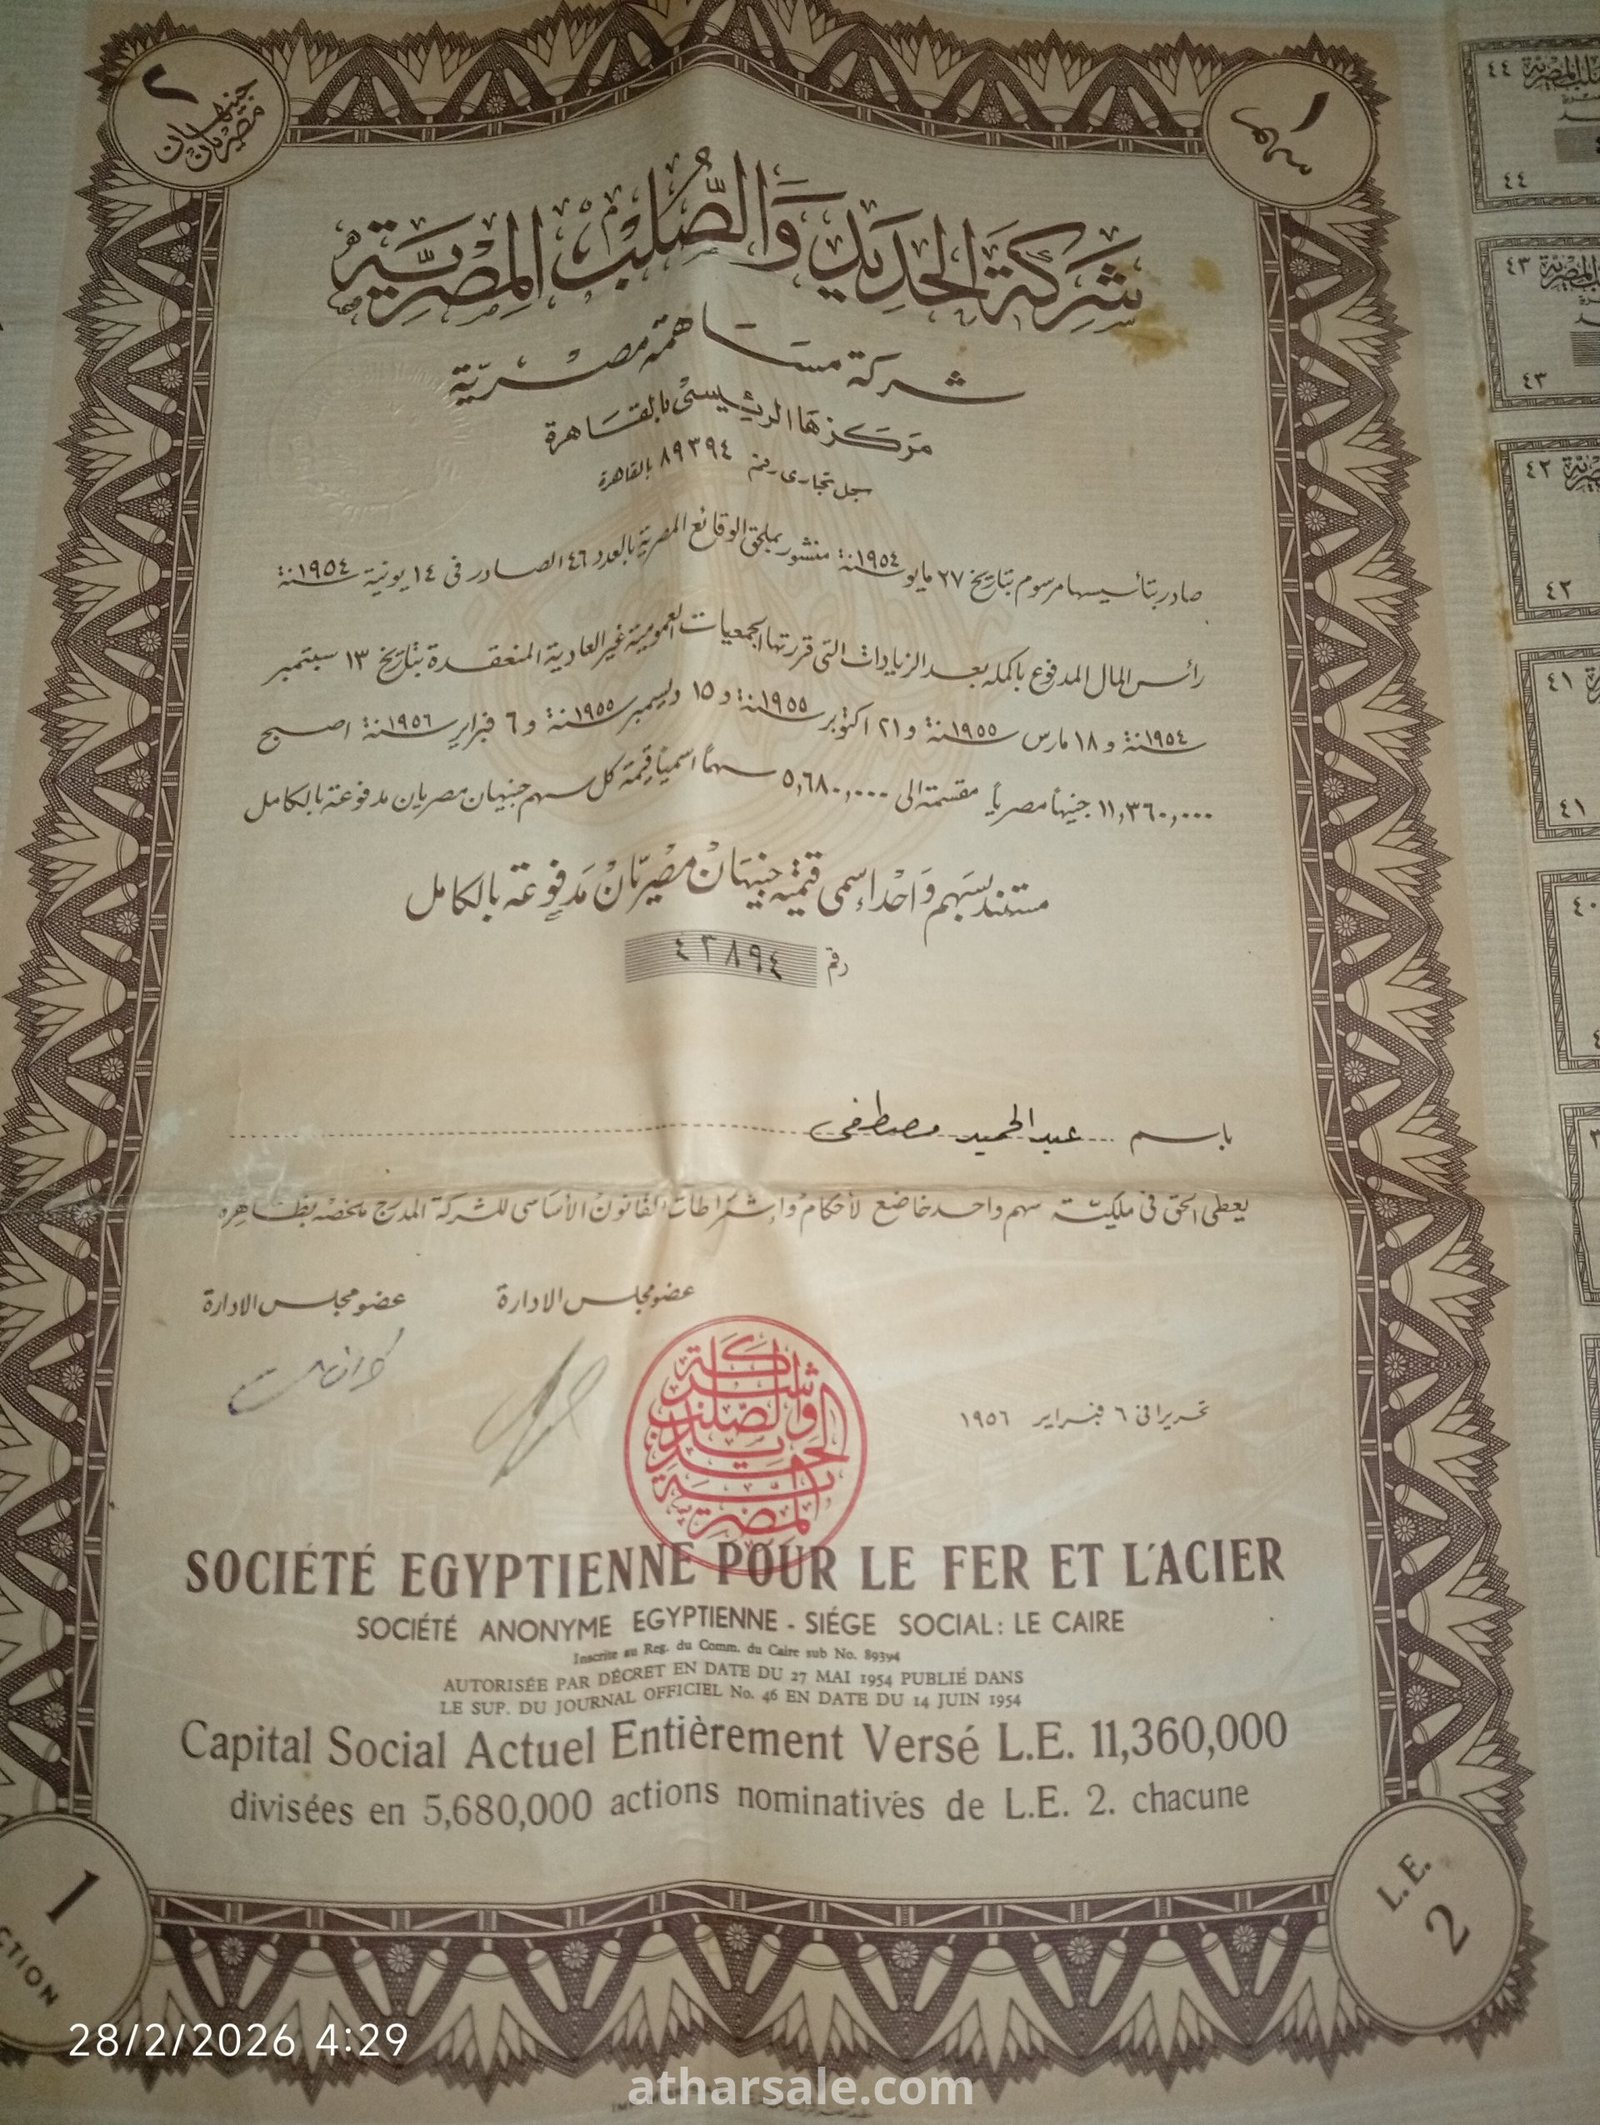 ٢ جنيهان مصريان
١ سهم
شَركة الحَديد وَالصُّلب المِصْريَّة
شركة مساهمة مصريّة
مَركزها الرئيسى بالقاهرة
سجل تجارى رقم ٨٩٣٩٤ بالقاهرة
صادر بتأسيسها مرسوم بتاريخ ٢٧ مايو سنة ١٩٥٤ منشور بملحق الوقائع المصرية بالعدد ٤٦ الصادر فى ١٤ يونية سنة ١٩٥٤
رأس المال المدفوع بأكمله بعد الزيادات التى قررتها الجمعيات العمومية غير العادية المنعقدة بتاريخ ١٣ سبتمبر
سنة ١٩٥٤ و ١٨ مارس سنة ١٩٥٥ و ٢١ اكتوبر سنة ١٩٥٥ و ١٥ ديسمبر سنة ١٩٥٥ و ٦ فبراير سنة ١٩٥٦ اصبح
١١,٣٦٠,٠٠٠ جنيهاً مصرياً مقسمة الى ٥,٦٨٠,٠٠٠ سهماً اسمياً قيمة كل سهم جنيهان مصريان مدفوعة بالكامل
مستند بسَهم وَاحْد إسمى قيمته جنيهَانْ مصْريّانْ مَدفوعَة بالكامل
رقم ٤٣٨٩٤
باسم عبد الحميد مصطفى
يعطى الحق فى ملكيّة سهم واحد خاضع لأحكام وإشتراطات القانون الأساسى للشركة المدرج ملخصه بظاهره
عضو مجلس الادارة
عضو مجلس الادارة
تحريرا فى ٦ فبراير ١٩٥٦
شركة الحديد والصلب المصرية
SOCIÉTÉ EGYPTIENNE POUR LE FER ET L'ACIER
SOCIÉTÉ ANONYME EGYPTIENNE - SIÉGE SOCIAL: LE CAIRE
Inscrite au Reg. du Comm. du Caire sub No. 89394
AUTORISÉE PAR DÉCRET EN DATE DU 27 MAI 1954 PUBLIÉ DANS
LE SUP. DU JOURNAL OFFICIEL No. 46 EN DATE DU 14 JUIN 1954
Capital Social Actuel Entièrement Versé L.E. 11,360,000
divisées en 5,680,000 actions nominatives de L.E. 2. chacune
1
L.E. 2
٤٤
٤٤
٤٣
٤٣
٤٢
٤٢
٤١
٤١
٤٠
28/2/2026 4:29
atharsale.com